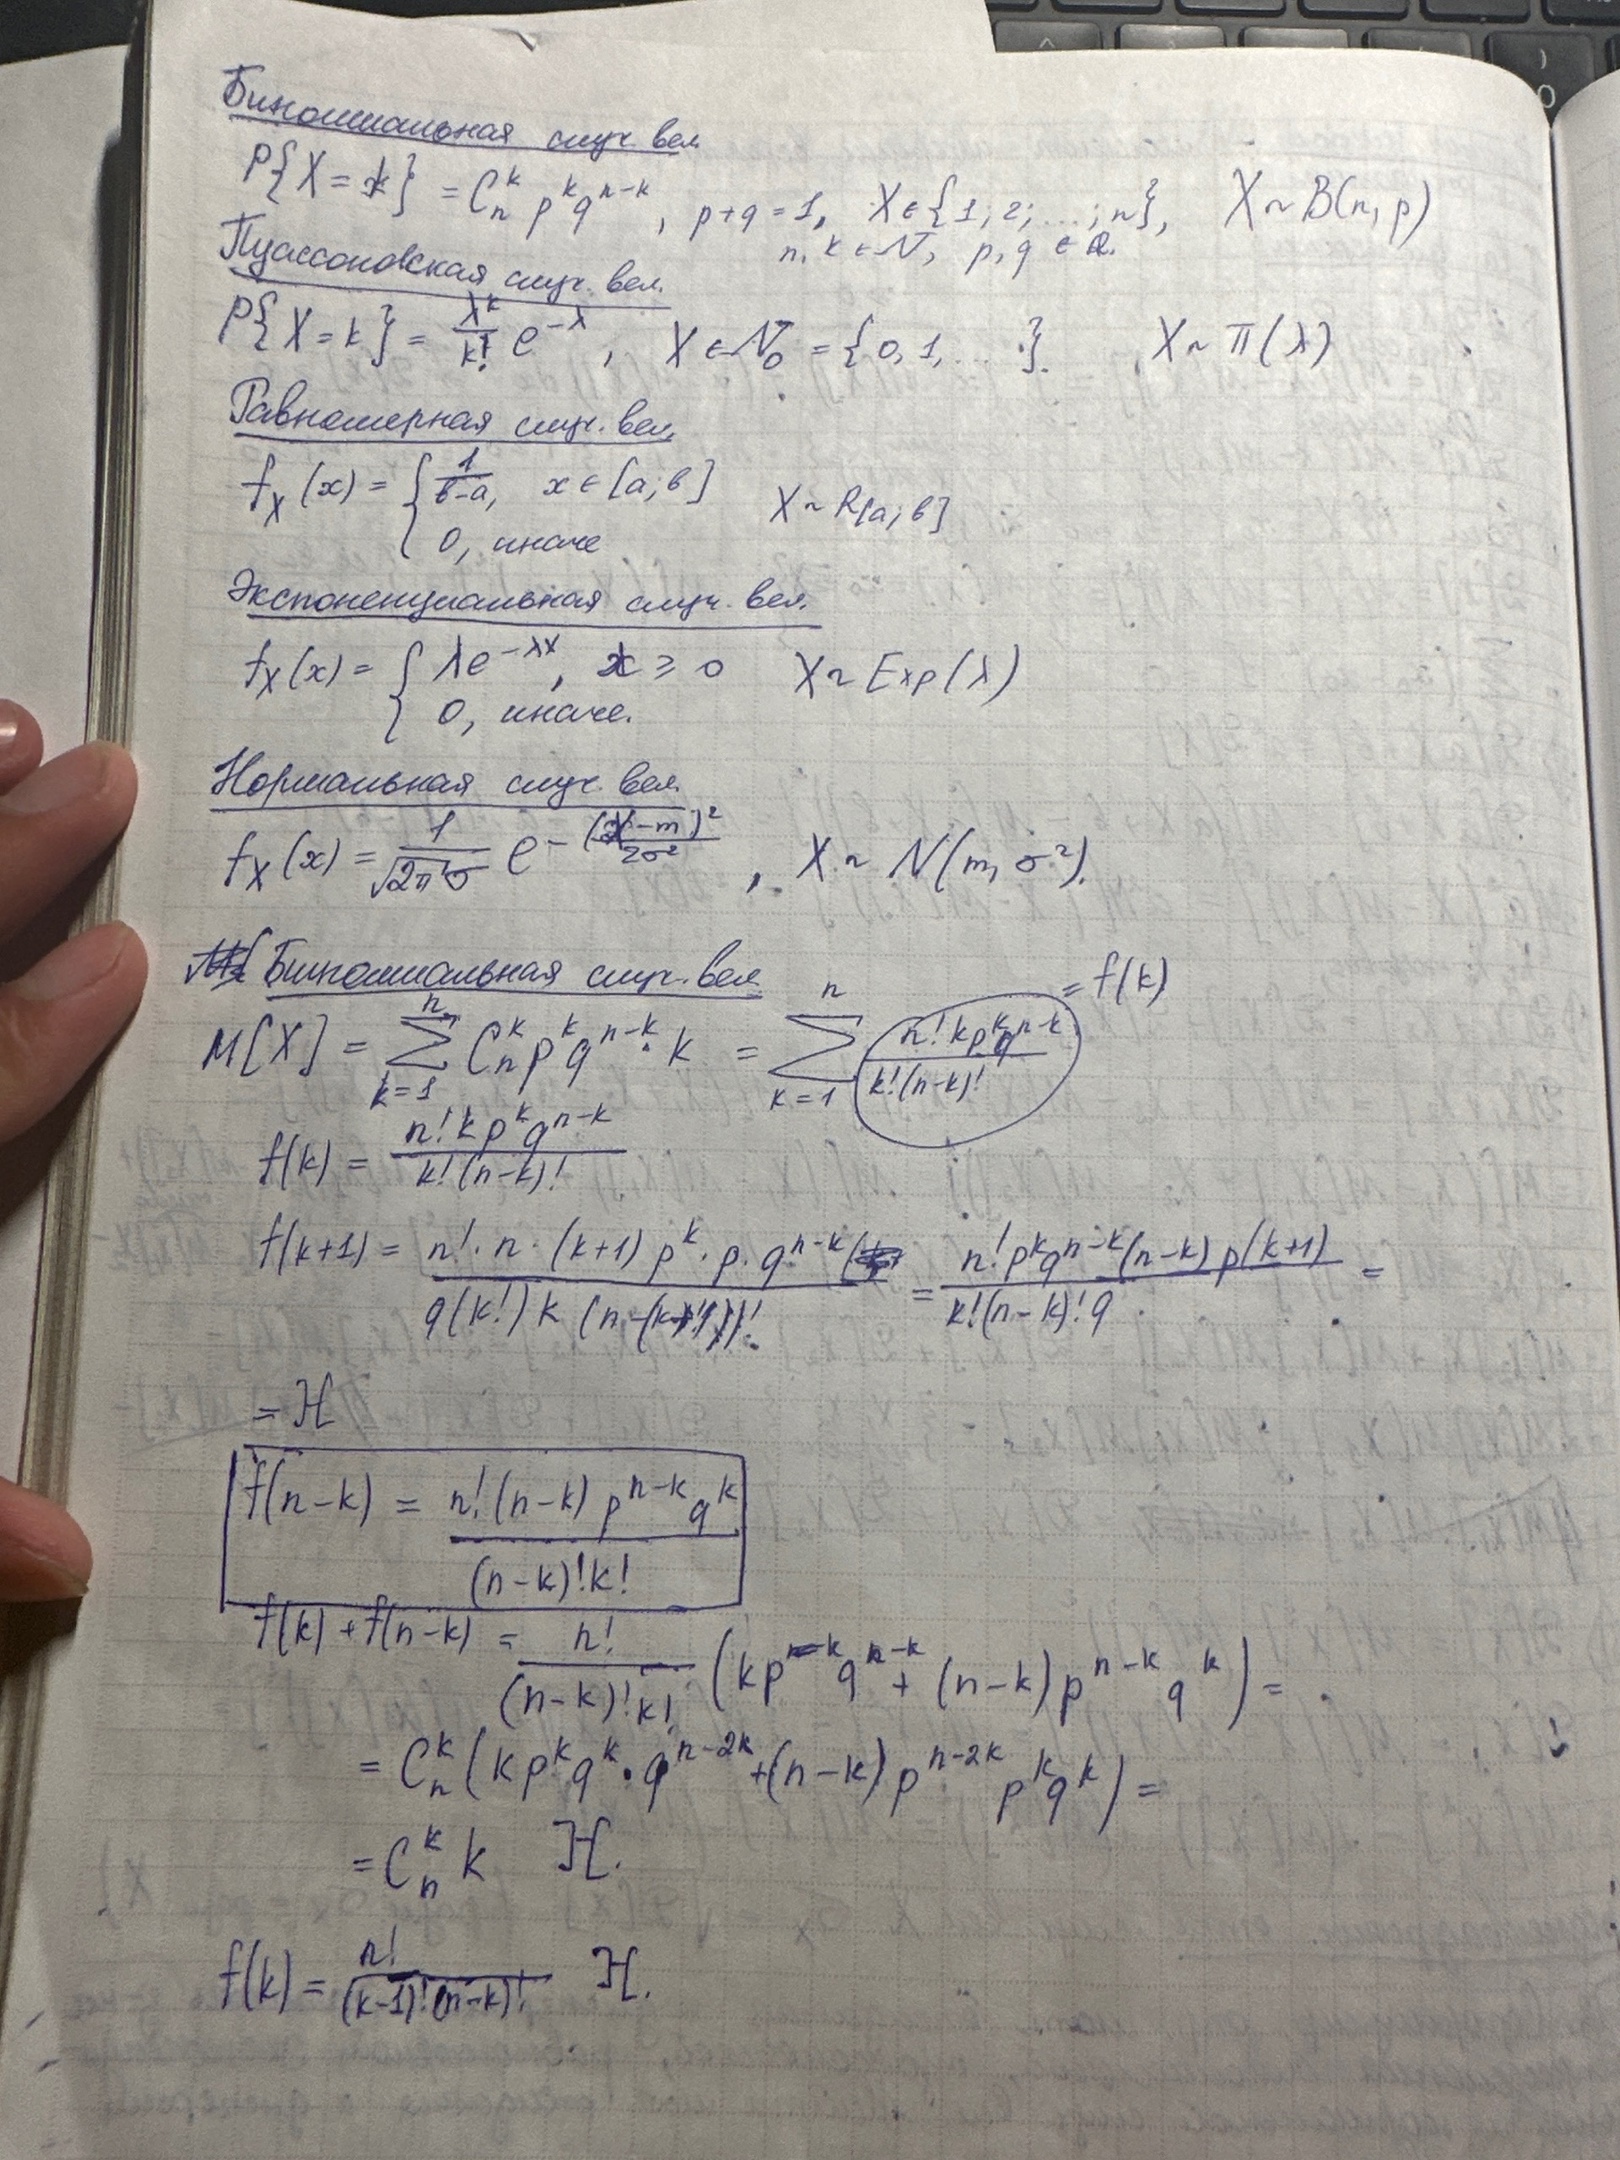 Биномиальная случ. вел.
P{X = k} = C_n^k p^k q^{n-k}, p+q=1, X∈{1; 2; ...; n}, X ~ B(n, p)
n, k ∈ N, p, q ∈ R.
Пуассоновская случ. вел.
P{X = k} = λ^k/k! e^{-λ}, X ∈ N_0 = {0, 1, ... }. X ~ π(λ)
Равномерная случ. вел.
f_X(x) = { 1/(в-a), x ∈ [a; в]
0, иначе X ~ R[a; в]
Экспоненциальная случ. вел.
f_X(x) = { λe^{-λx}, x ≥ 0 X ~ Exp(λ)
0, иначе.
Нормальная случ. вел.
f_X(x) = 1/(√2π σ) e^{-(x-m)²/2σ²}, X ~ N(m, σ²).
Биномиальная случ. вел.
M[X] = ∑_{k=1}^{n} C_n^k p^k q^{n-k} · k = ∑_{k=1}^{n} n! k p^k q^{n-k} / k!(n-k)! = f(k)
f(k) = n! k p^k q^{n-k} / k!(n-k)!
f(k+1) = n! · n · (k+1) p^k · p · q^{n-k} / q(k!) k (n-(k+1))! = n! p^k q^{n-k} (n-k) p(k+1) / k!(n-k)! q =
= Н
f(n-k) = n! (n-k) p^{n-k} q^k / (n-k)! k!
f(k) + f(n-k) = n! / (n-k)! k! (k p^k q^{n-k} + (n-k) p^{n-k} q^k) =
= C_n^k (k p^k q^k · q^{n-2k} + (n-k) p^{n-2k} p^k q^k) =
= C_n^k k Н.
f(k) = n! / (k-1)! (n-k)! Н.